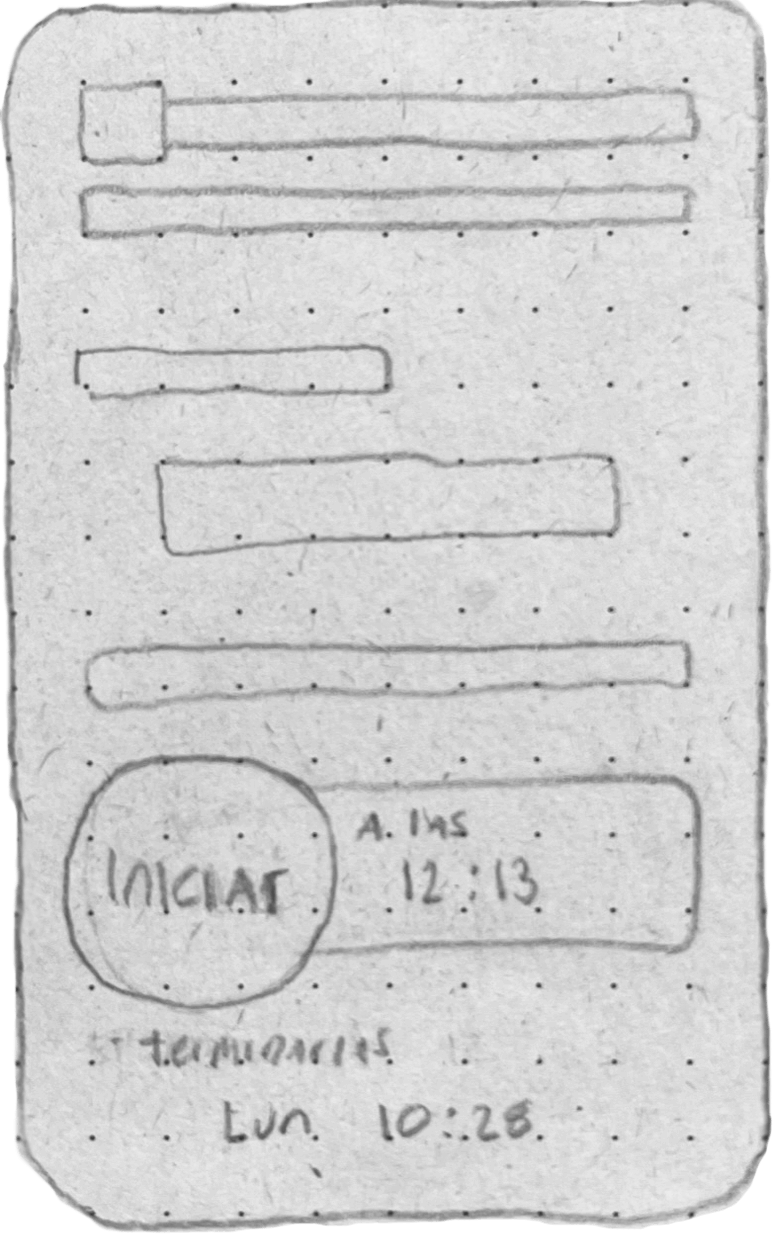 INICIAR
A. las
12:13
terminarías
Lun 10:28